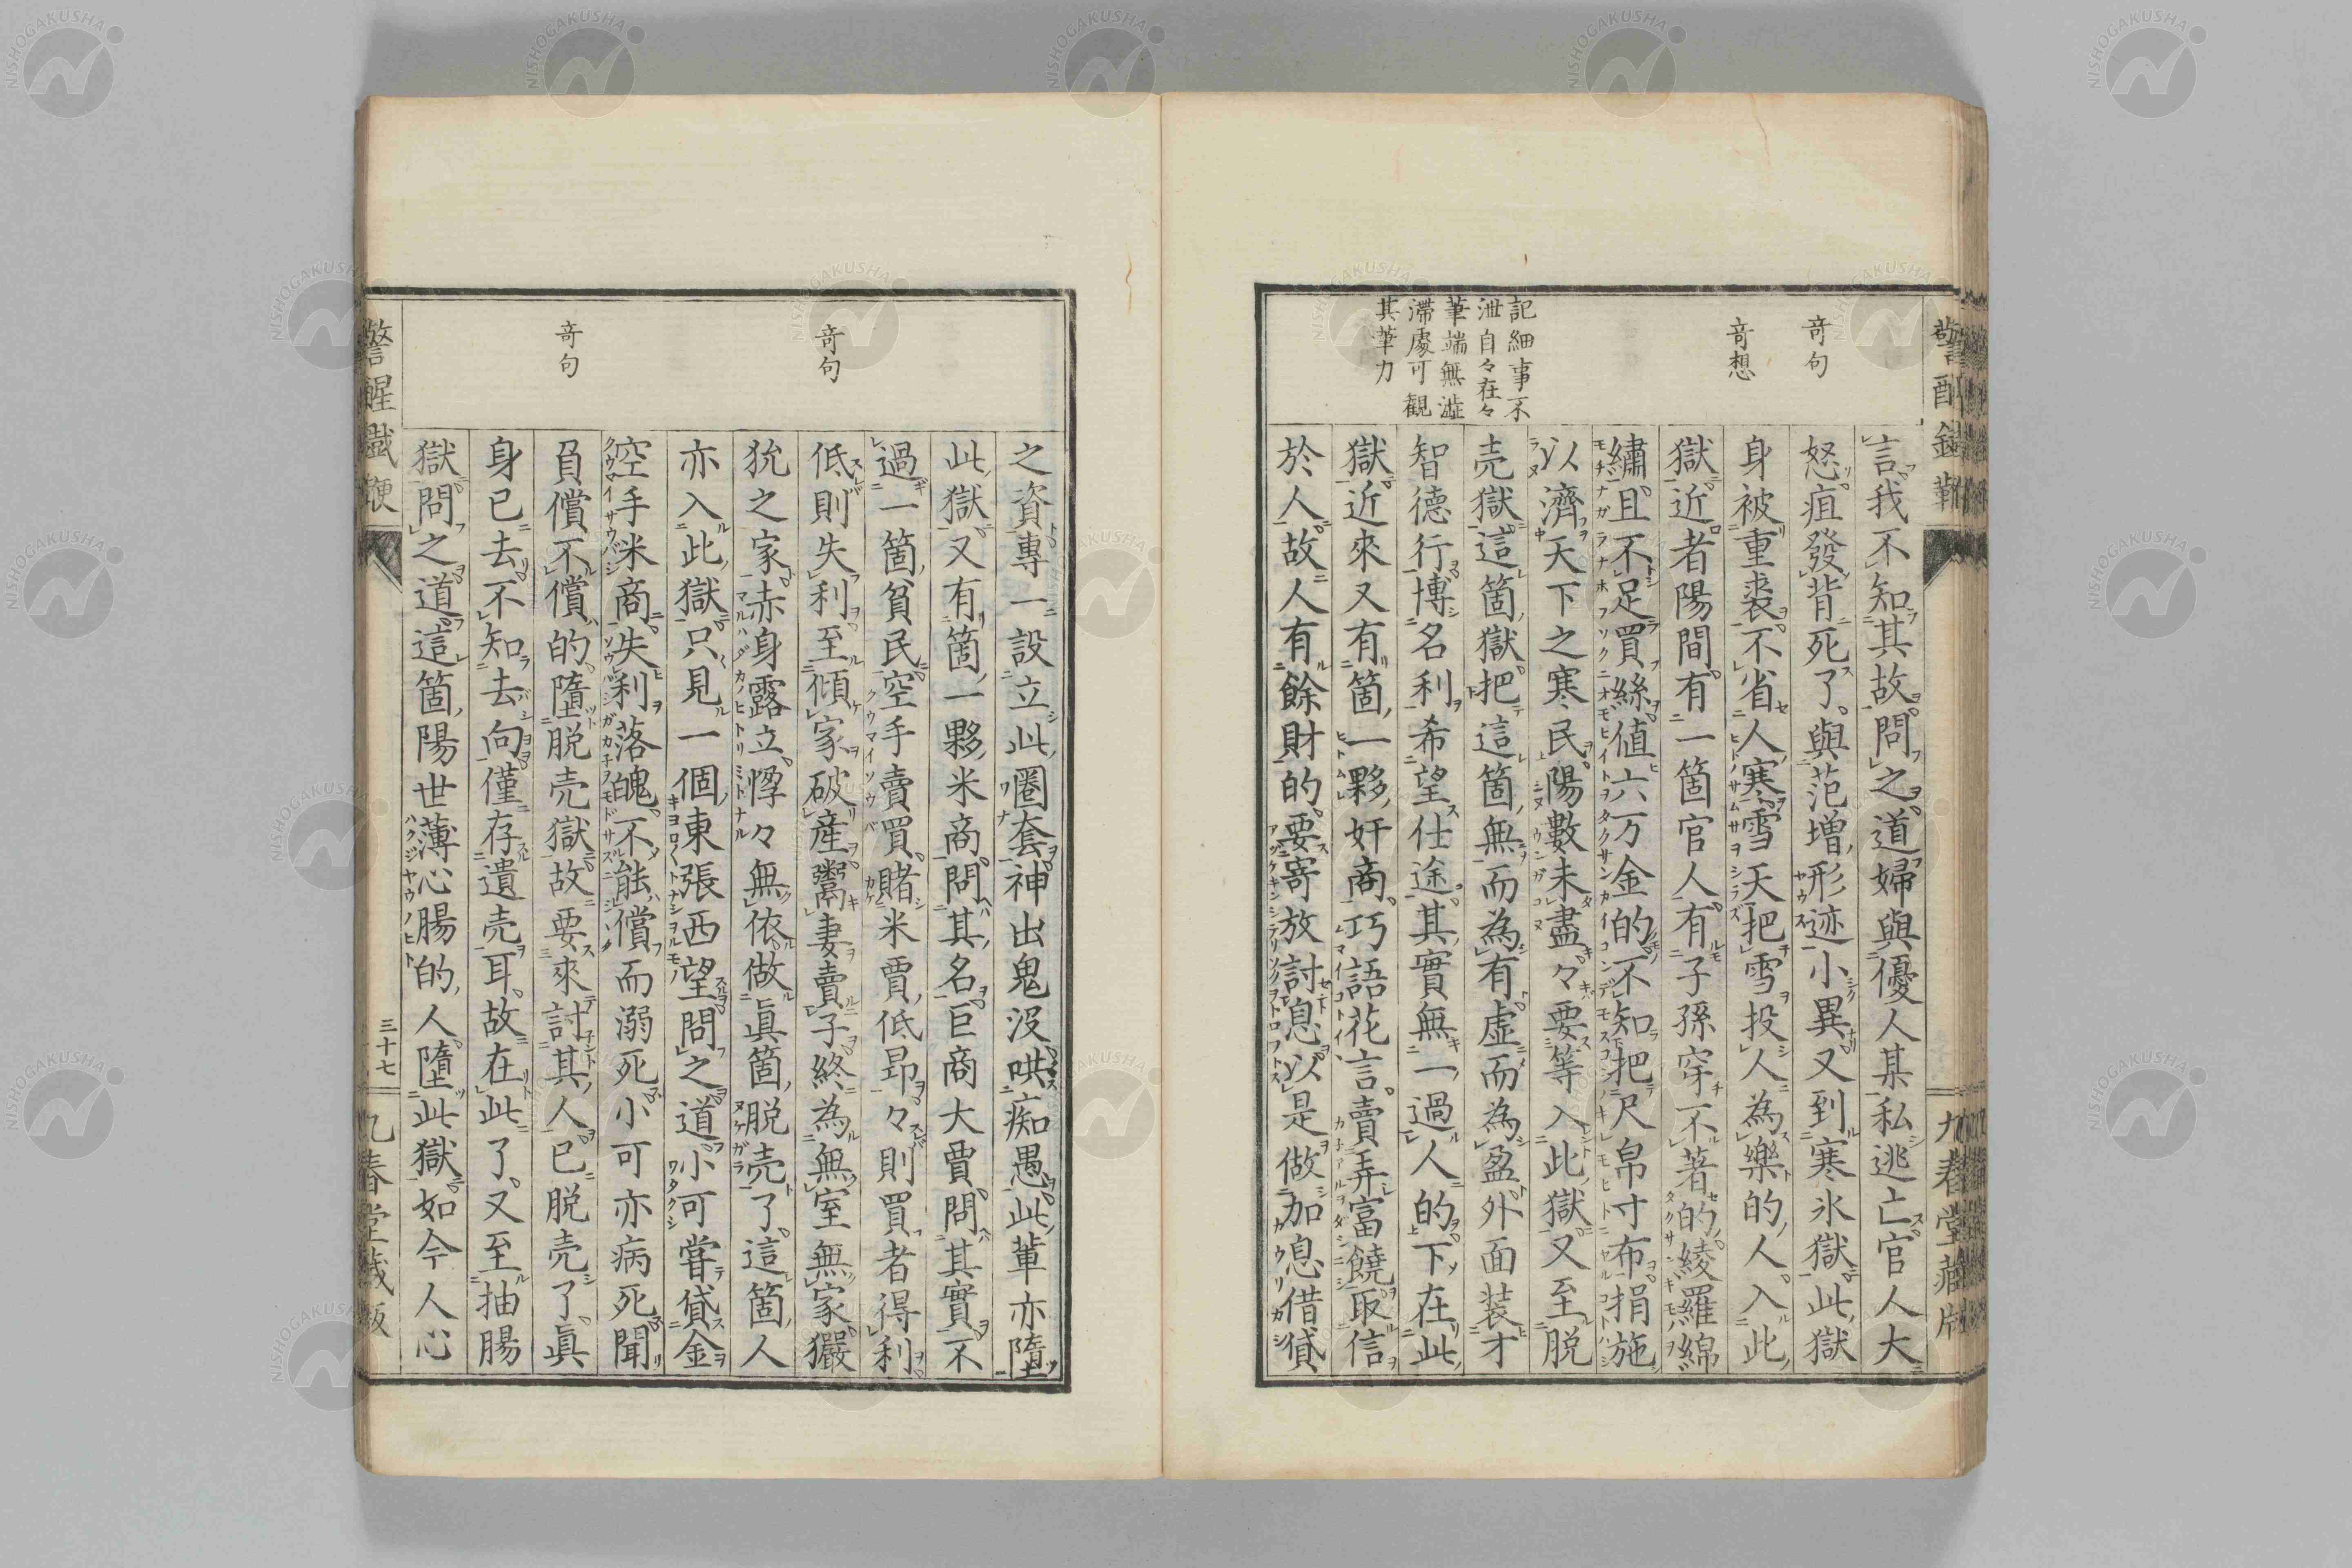 記細事不
泄自々在々
筆端無澁
滞處可觀
其筆力
奇想
奇句
言我不知其故問之道婦與優人某私逃亡官人大
怒疽發背死了與范增形迹小異又到寒氷獄此獄
身被重裘不省人寒雪天把雪投人為樂的人入此
獄近者陽間有一箇官人有子孫穿不著的綾羅綿
繡且不足買絲値六万金的不知把尺帛寸布捐施
以濟天下之寒民陽數未盡々要等入此獄又至脱
売獄這箇獄把這箇無而為有虚而為盈外面装才
智德行博名利希望仕途其實無一過人的下在此
獄近來又有箇一夥奸商巧語花言賣弄富饒取信
於人故人有餘財的要寄放討息以是做加息借貸
九春堂藏版
奇句
奇句
之資專一設立此圈套神出鬼没哄痴愚此輩亦墮
此獄又有箇一夥米商問其名巨商大賈問其實不
過一箇貧民空手賣買賭米賈低昂々則買者得利
低則失利至傾家破產鬻妻賣子終為無室無家玁
狁之家赤身露立惸々無依做眞箇脱売了這箇人
亦入此獄只見一個東張西望問之道小可嘗貸金
空手米商失利落魄不能償而溺死小可亦病死聞
負償不償的墮脱売獄故要來討其人已脱売了眞
身已去不知去向僅存遺売耳故在此了又至抽腸
獄問之道這箇陽世薄心腸的人墮此獄如今人心
警醒鐵鞭
三十七
九春堂藏版